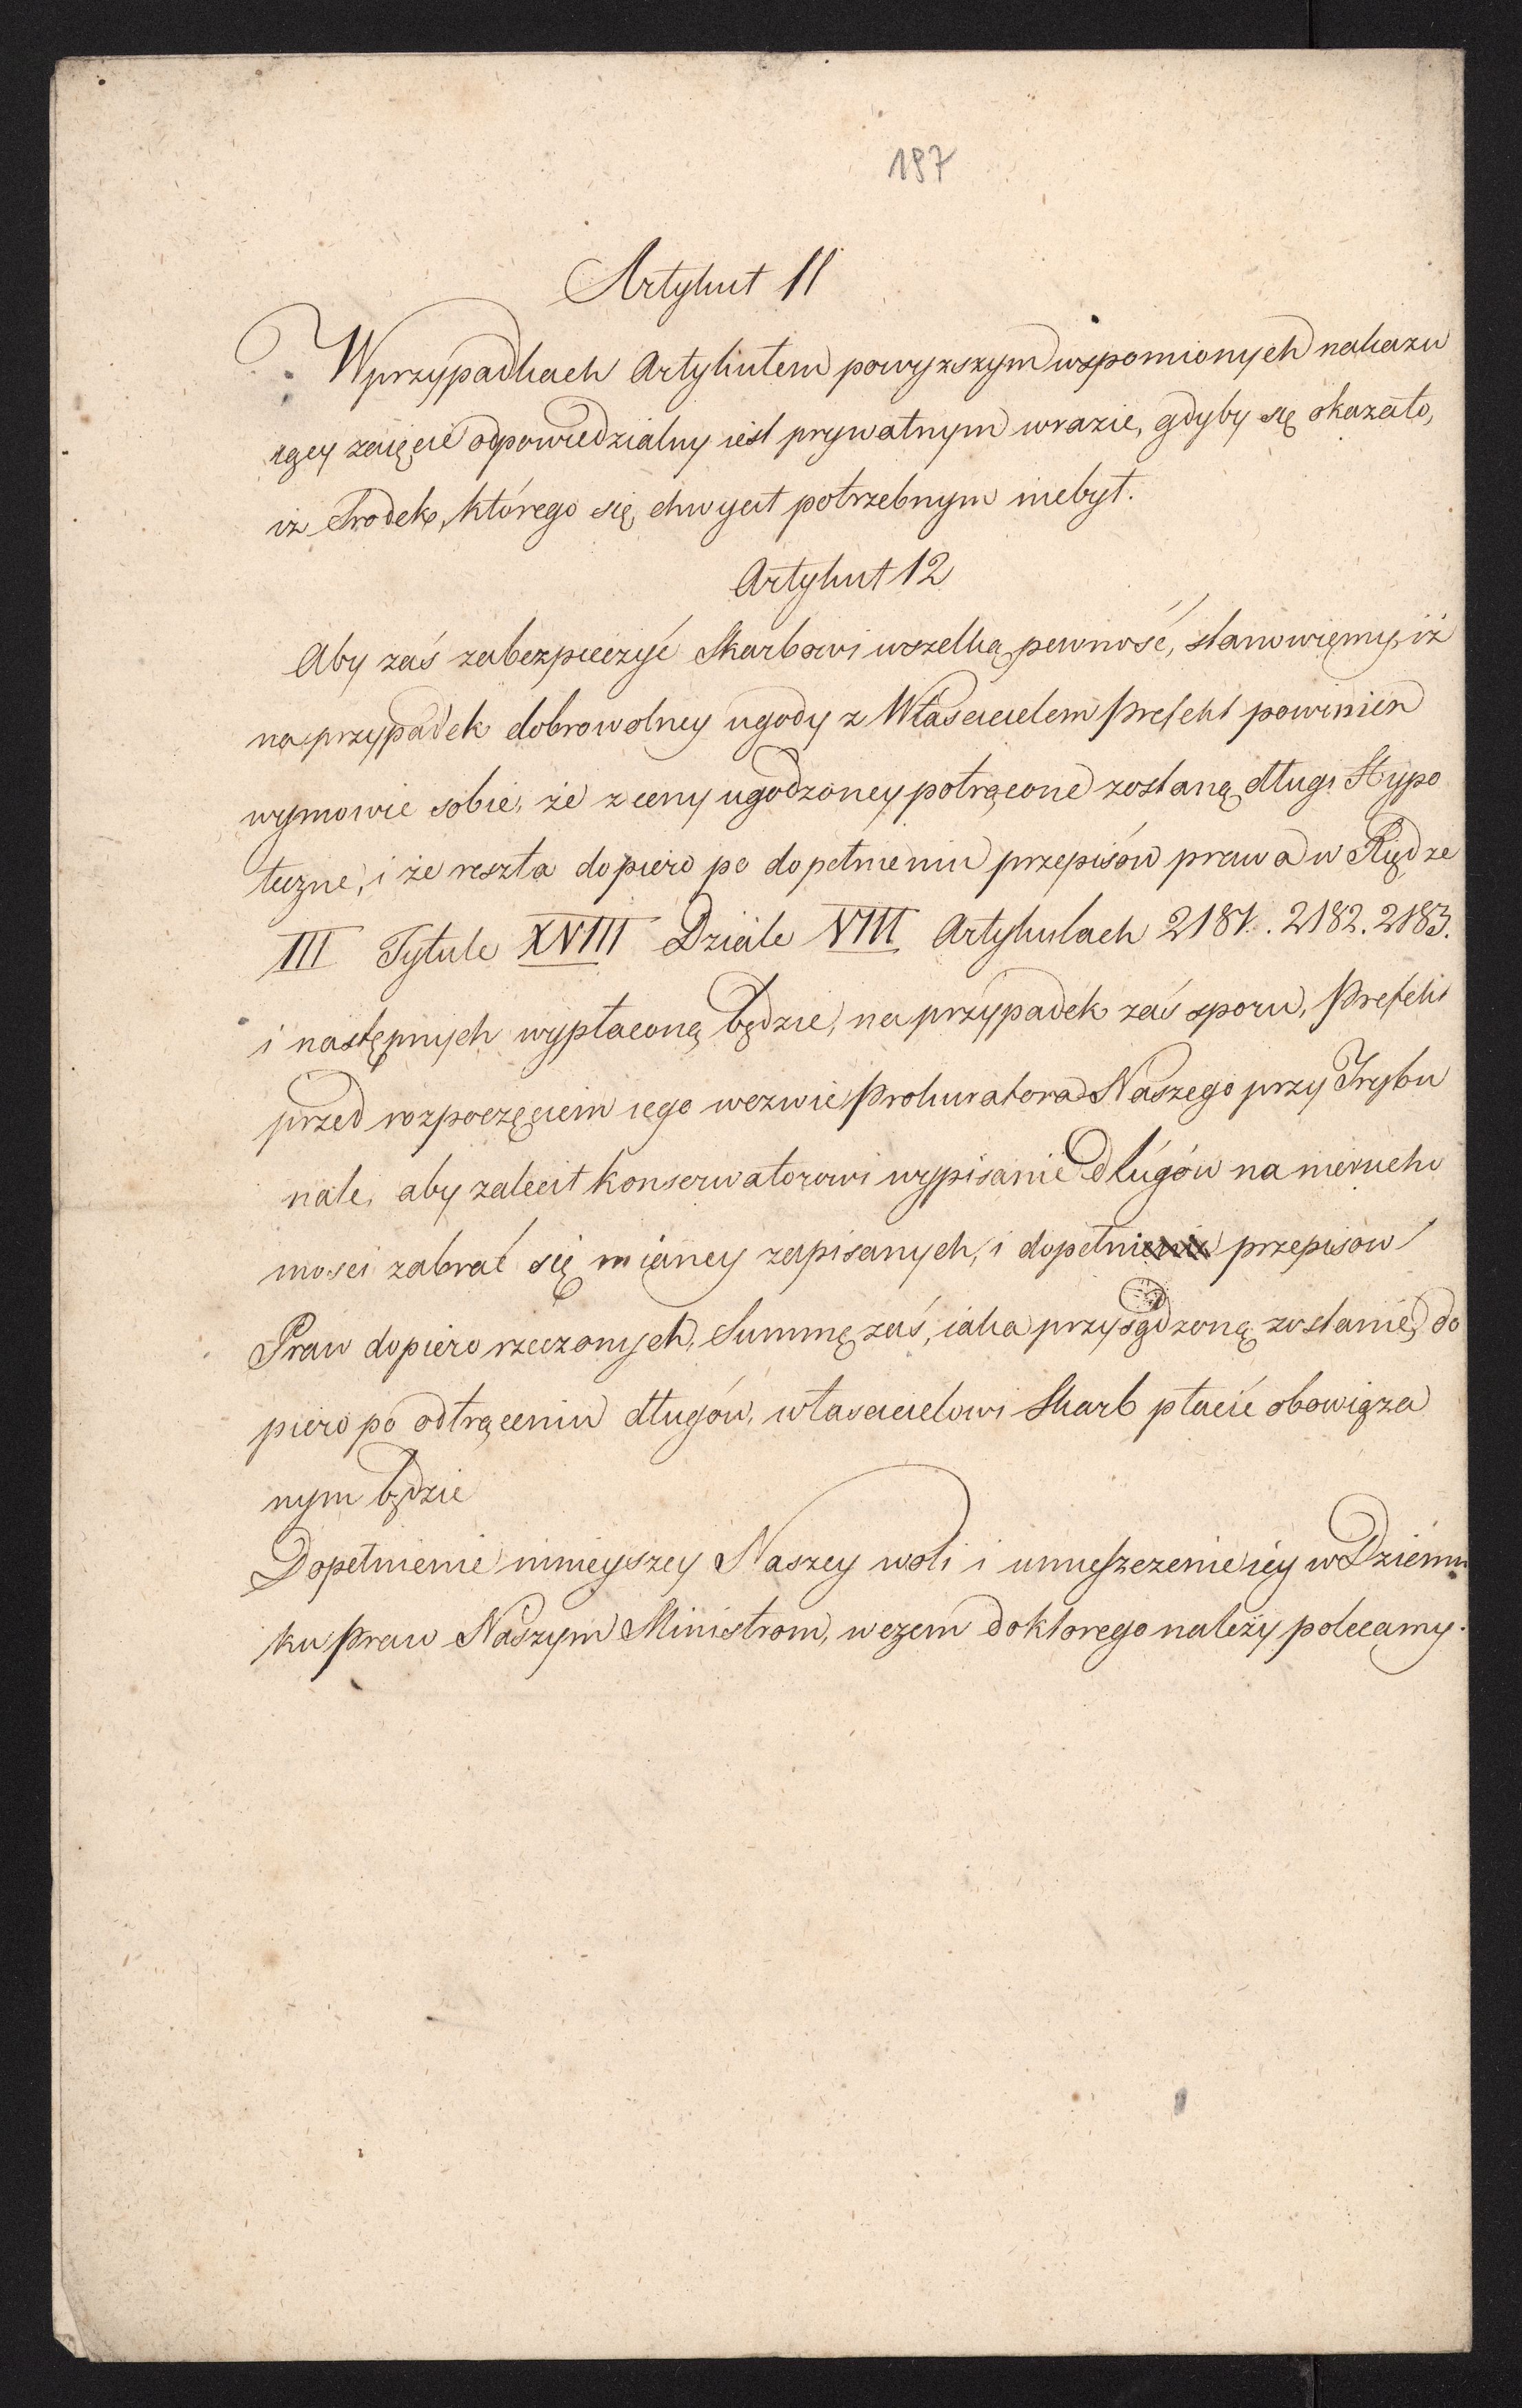 197
Artykuł 11
W przypadkach Artykułem powyższym wspomionych nakazu
iący zaięcie odpowiedzialny iest prywatnym wrazie, gdyby się okazało,
iż Srodek, którego się chwycił potrzebnym niebył.
Artykuł 12
Aby zaś zabezpieczyć Skarbowi wszelką pewność, stanowiemy, iż
na przypadek dobrowolney ugody z Właścicielem Prefekt powinien
wymowić sobie, że z ceny ugodzoney potrącone zostaną długi Hypo
teczne, i że reszta dopiero po dopełnieniu przepisów prawa w Xiędze
III Tytule XVIII Dziale VIII Artykułach 2181. 2182. 2183.
i następnych wypłaconą będzie, na przypadek zaś sporu, Prefekt
przed rozpoczęciem iego wezwie Prokuratora Naszego przy Trybu
nale, aby zalecił konserwatorowi wypisanie długów na nierucho
mości zabrać się mianey zapisanych, i dopełnienie przepisów
Praw dopiero rzeczonych, Summę zaś, iaka przysądzoną zostanie, do
piero po odtrąceniu długów, właścicielowi Skarb płacić obowiąza
nym będzie
Dopełnienie ninieyszey Naszey woli i umieszczenie iey w Dzienni
ku Praw Naszym Ministrom, w czem do ktorego należy polecamy.